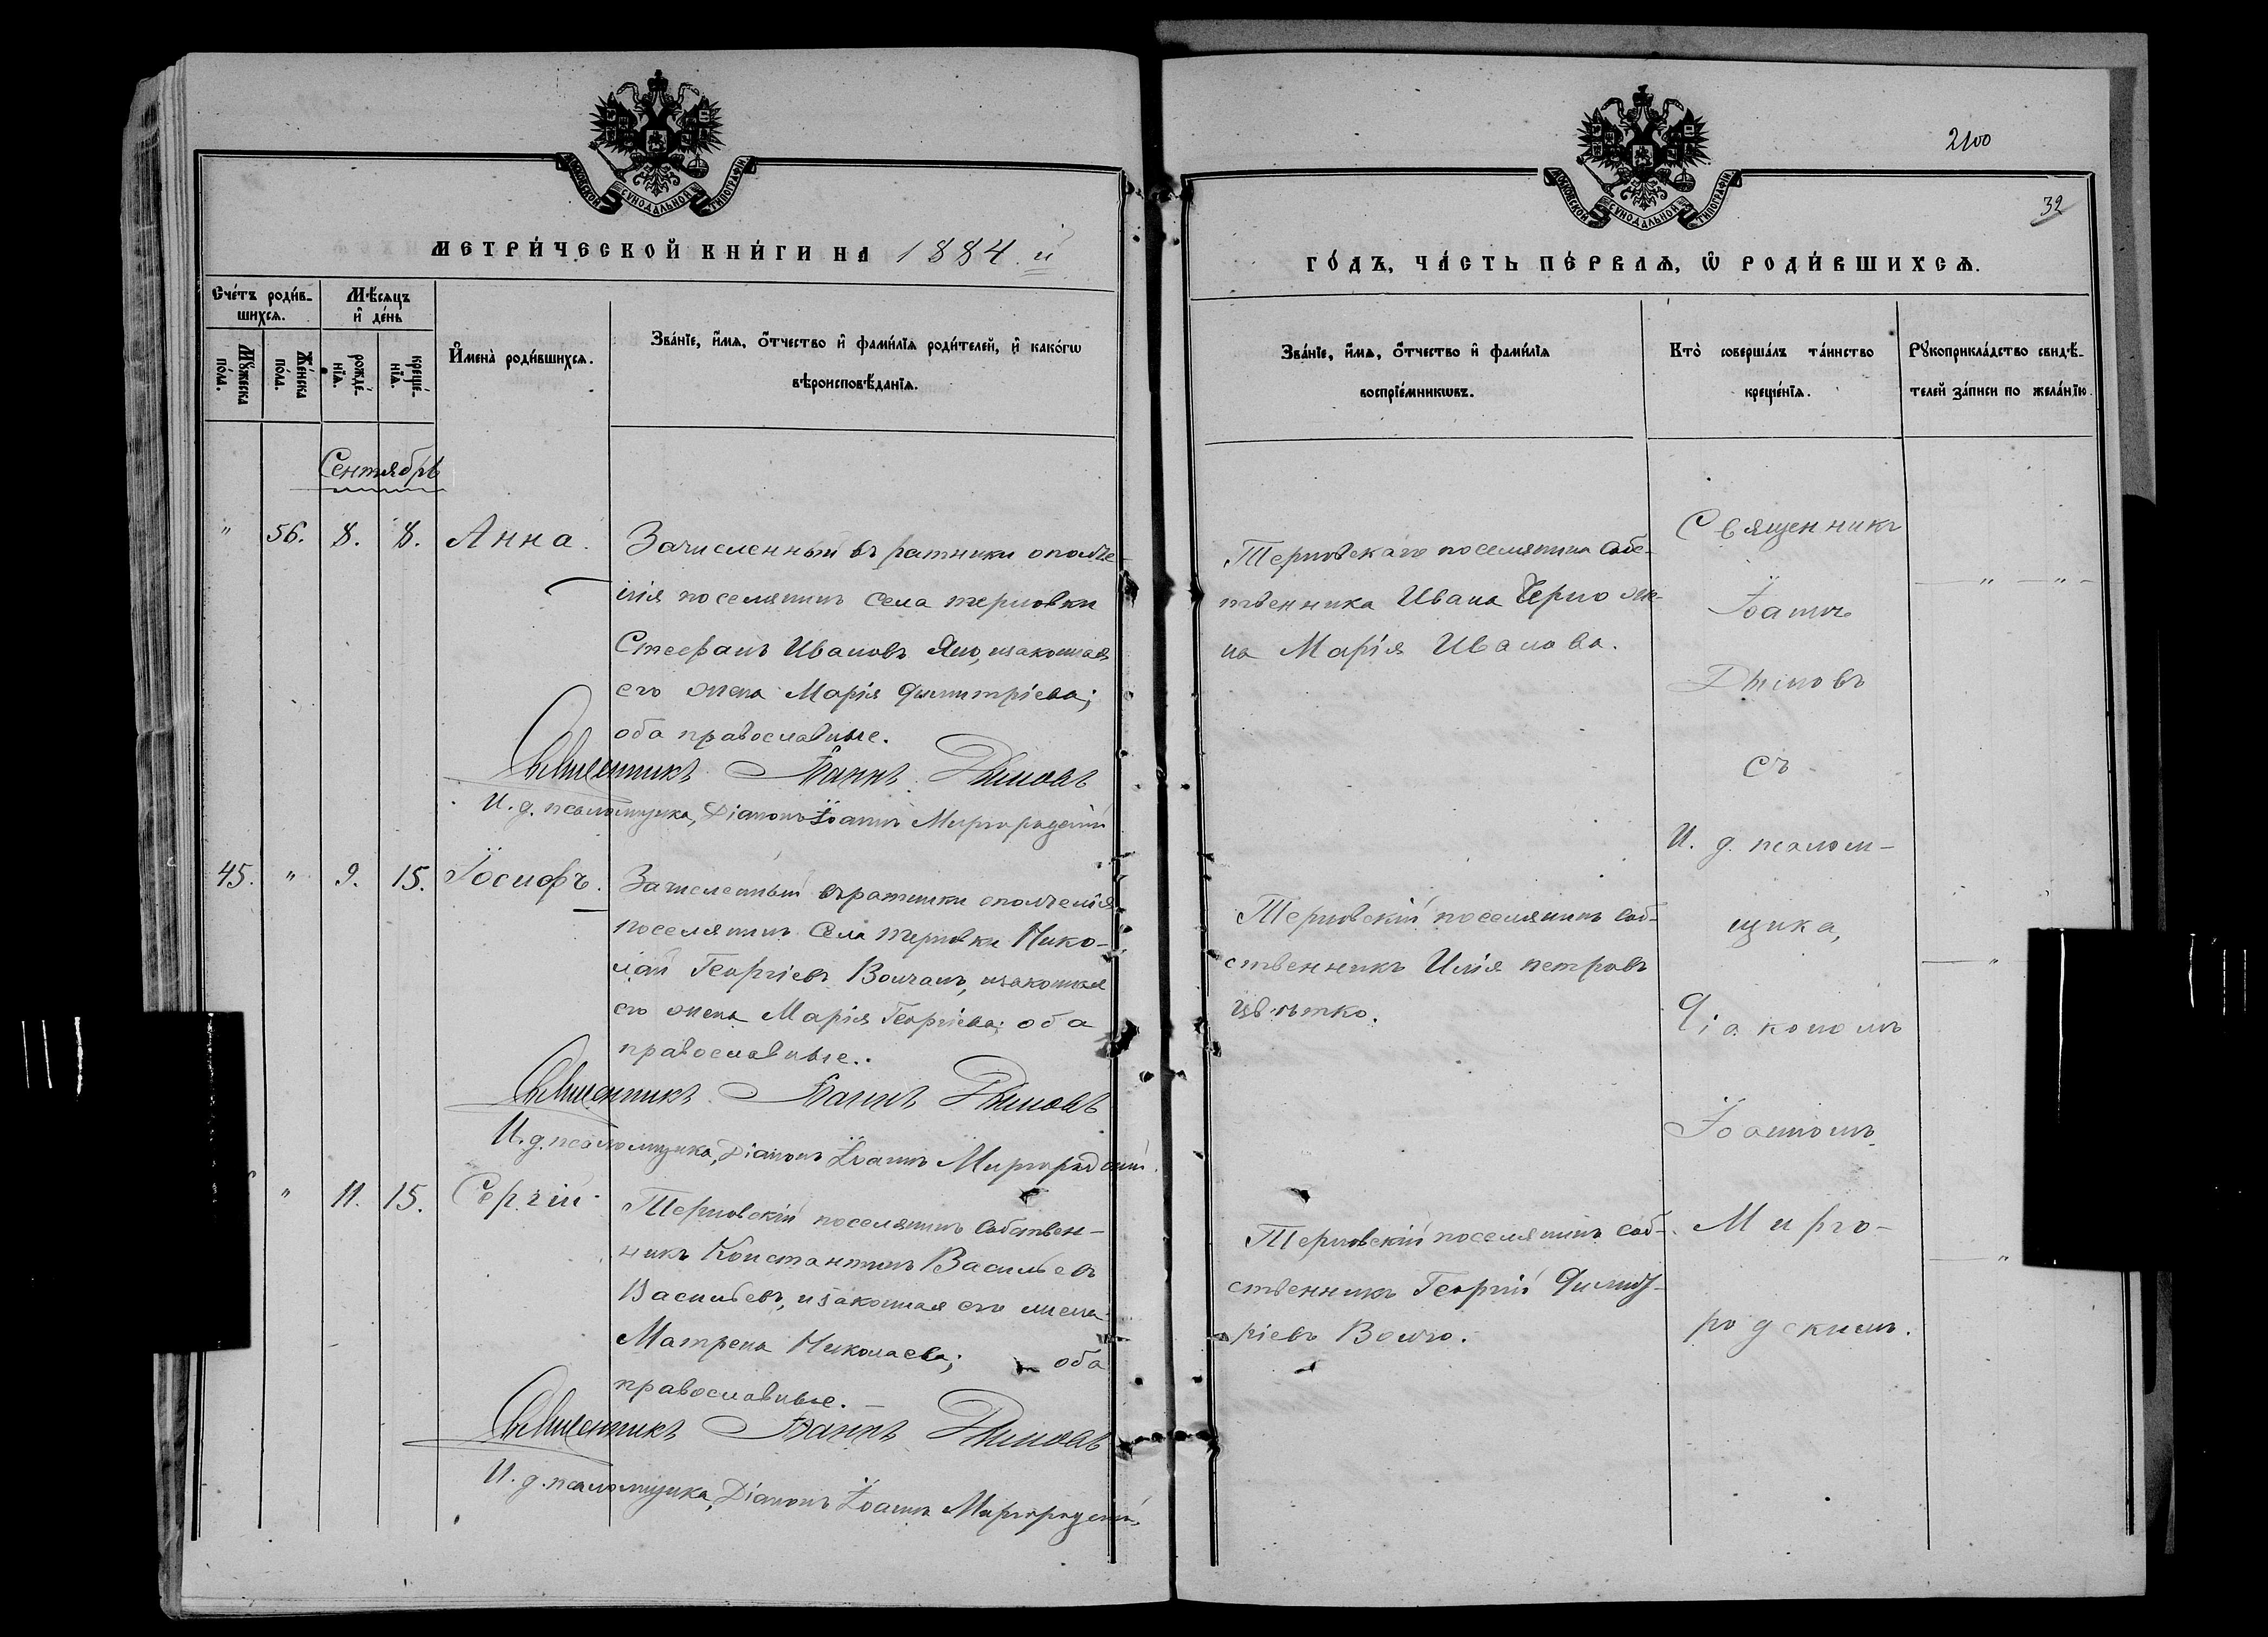 МОСКОВСКОЙ СѴНОДАЛЬНОЙ ТИПОГРАФІИ
МЕТРИ́ЧЕСКОЙ КНИ́ГИ НА 1884 й
Сче́тъ роди́в-
шихсѧ.
Мꙋ́жеска по́ла.
Же́нска по́ла.
Мѣ́сѧцъ
и҆ де́нь
рожде́-
нїѧ.
креще́-
нїѧ.
И҆мена̀ роди́вшихсѧ.
Зва́нїе, и҆́мѧ, ѻ҆́тчество и҆ фами́лїѧ роди́телей, и҆ како́гѡ
вѣроисповѣ́данїѧ.
Сентябрь
" 56. 8. 8. Анна.
Зачисленный въ ратники ополче-
нія поселянинъ села терновки
Стефанъ Ивановъ Яно, изаконная
его жена Марія Димитріева;
оба православные.
Священникъ Іоаннъ Дыновъ
И. д. псаломщика, Діаконъ Іоаннъ Миргородскій
45. " 9. 15. Іосифъ.
Зачисленный въ ратники ополченія
поселянинъ села терновки Нико-
лай Георгіевъ Волчанъ, изаконная
его жена Марія Георгіева; оба
православные.
Священникъ Іоаннъ Дыновъ
И. д. псаломщика, Діаконъ Іоаннъ Миргородскій.
" 11. 15. Сергій
Терновскій поселянинъ собствен-
никъ Константинъ Васильевъ
Васильевъ, изаконная его жена
Матрена Николаева; оба
православные.
Священникъ Іоаннъ Дыновъ
И. д. псаломщика, Діаконъ Іоаннъ Миргородскій
2100
32
МОСКОВСКОЙ СѴНОДАЛЬНОЙ ТИПОГРАФІИ
ГО́ДЪ, ЧА́СТЬ ПЕ́РВАѦ, Ѽ РОДИ́ВШИХСѦ.
Зва́нїе, и҆́мѧ, ѻ҆́тчество и҆ фами́лїѧ
воспрїе́мникѡвъ.
Кто̀ соверша́лъ та́инство
креще́нїѧ.
Рꙋкоприкла́дство свидѣ́-
телей за́писи по жела́нїю.
Терновскаго поселянина собс-
твенника Ивана Черно же-
на Марія Иванова.
Терновскій поселянинъ соб-
ственникъ Илія петровъ
цвѣтко.
Терновскій поселянинъ соб-
ственникъ Георгій Димит-
ріевъ Волчо.
Священникъ
Іоаннъ
Дыновъ
съ
И. д. псалом-
щика,
Діакономъ
Іоанномъ
Мирго-
родскимъ.